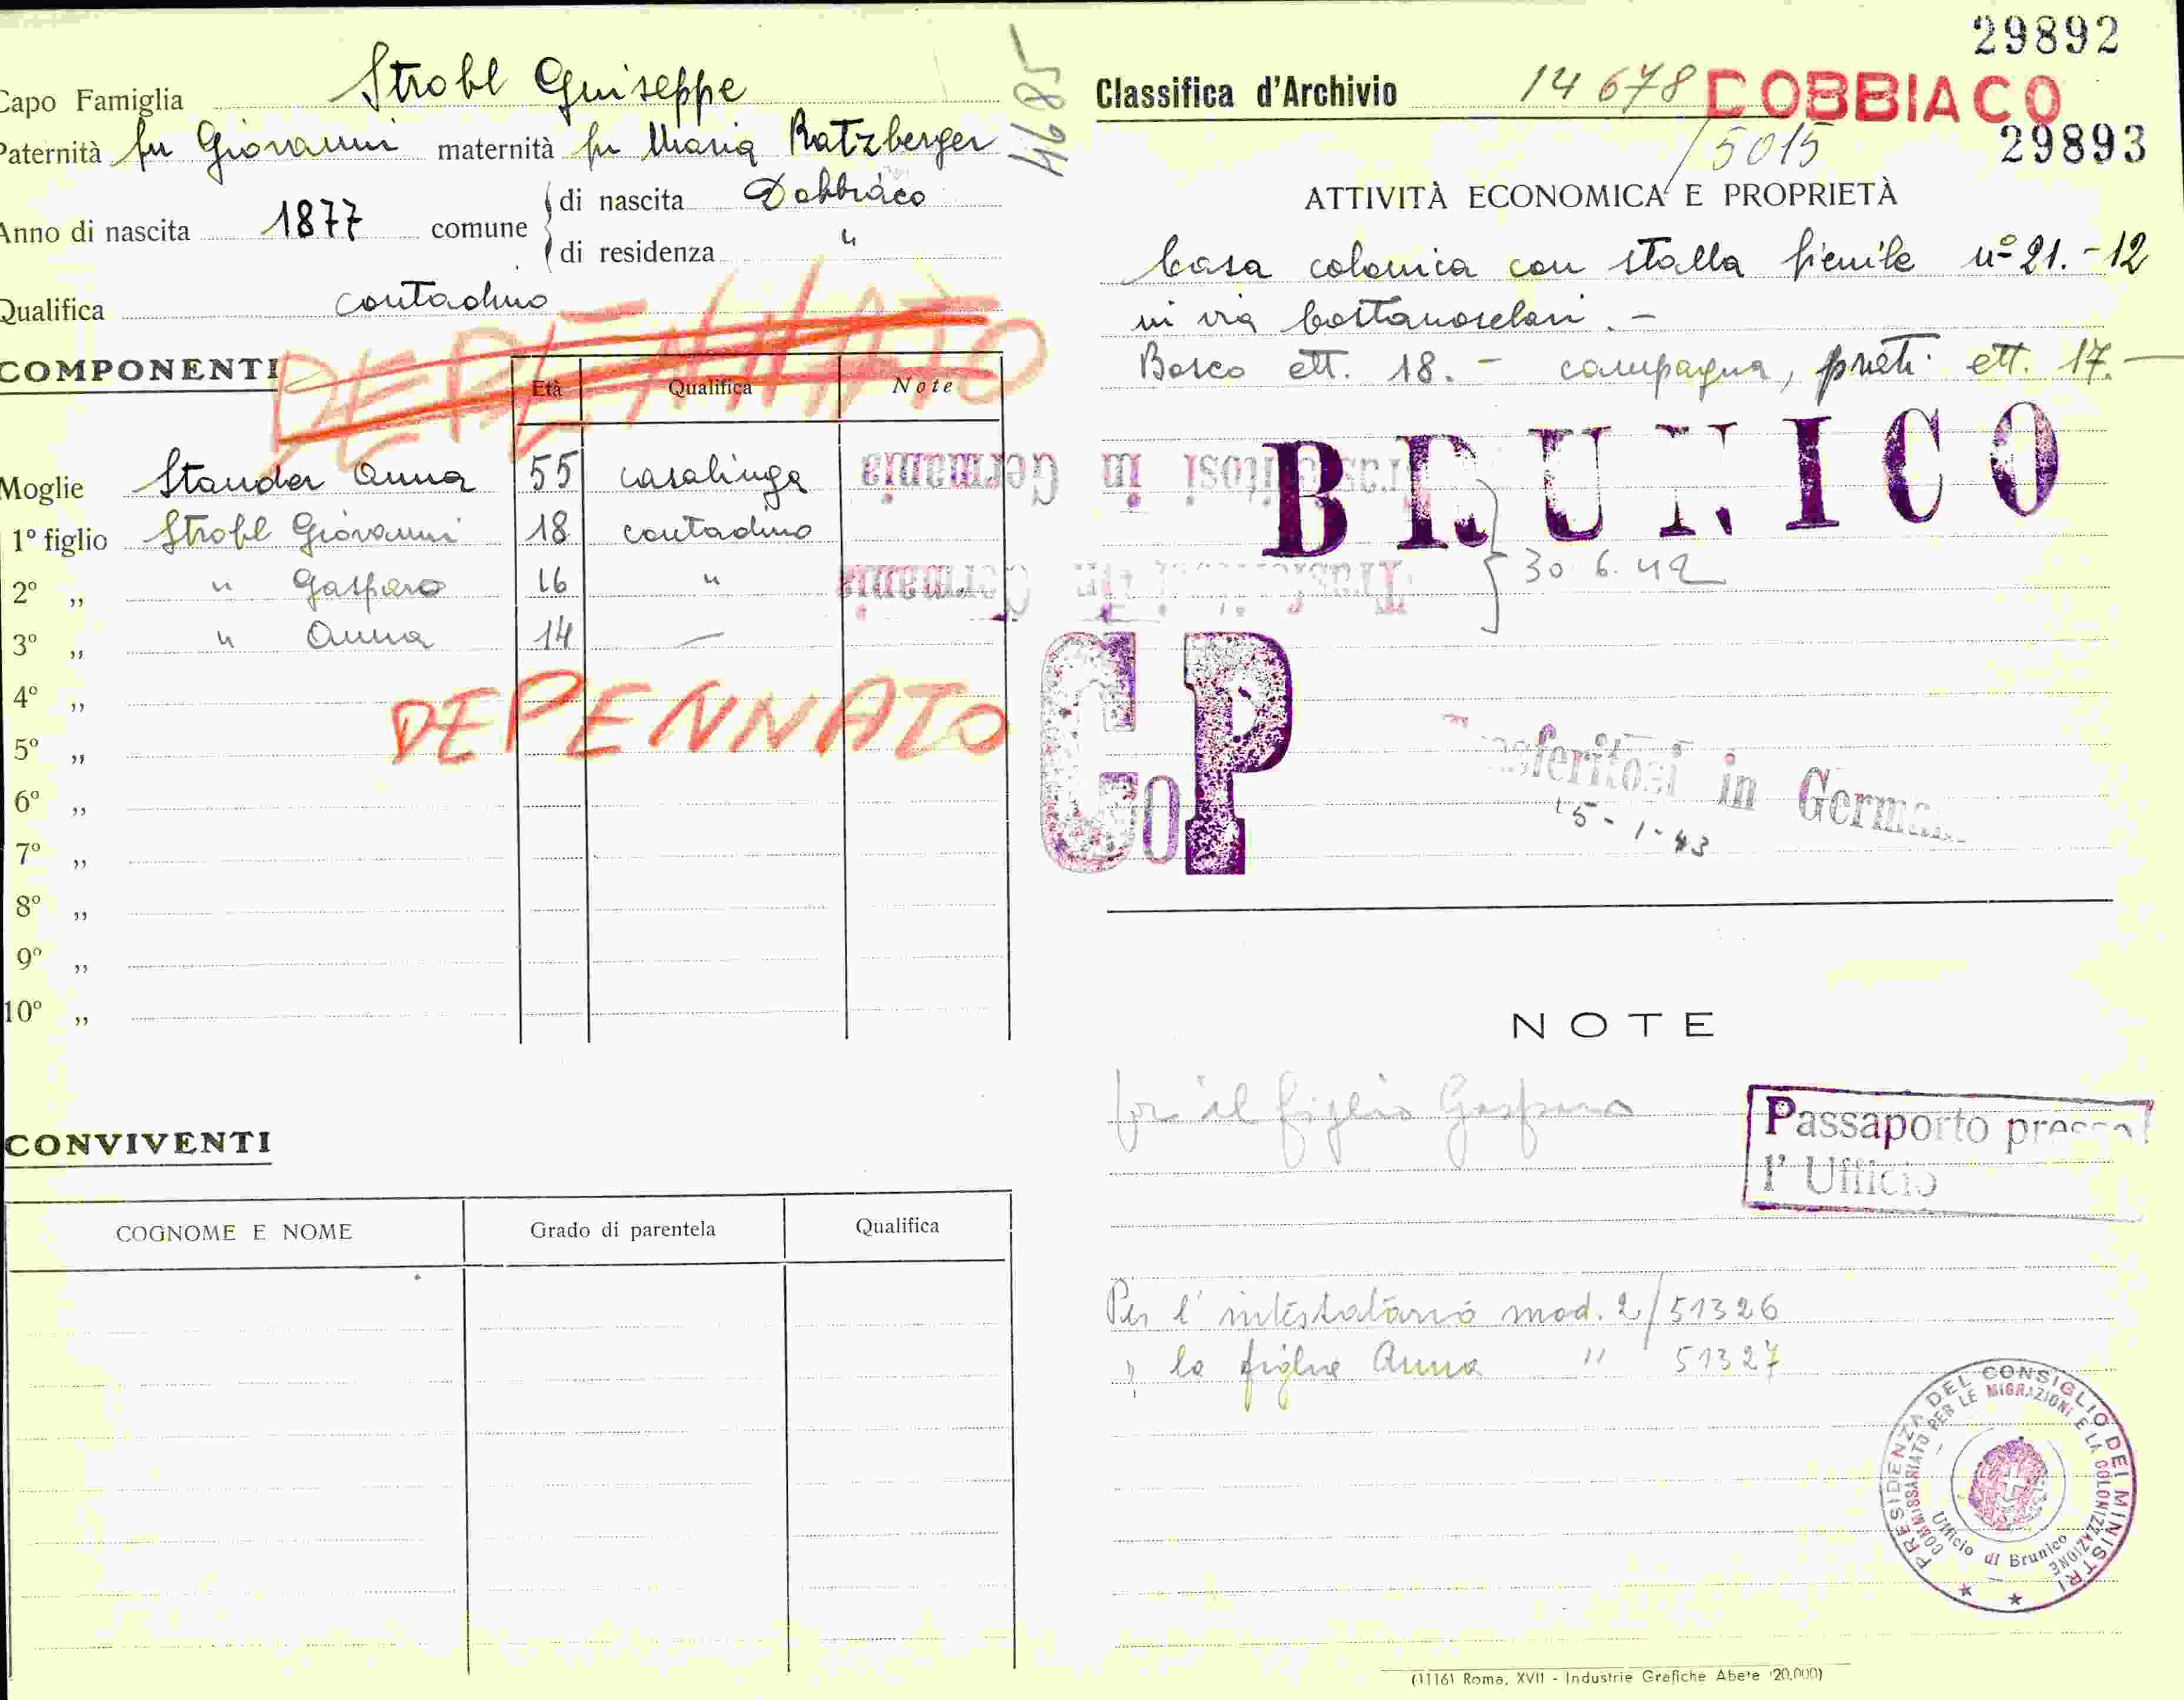 29892
Capo Famiglia Strobl Guiseppe
4685
Classifica d'Archivio 14678 DOBBIACO
/5015
29893
Paternità fu Giovanni maternità fu Maria Ratzberger
Anno di nascita 1877 comune di nascita Dobbiaco
di residenza "
Qualifica contadino
DEPENNATO
ATTIVITÀ ECONOMICA E PROPRIETÀ
Casa colonica con stalla fienile n° 21.-12
in via
Bosco ett. 18. - campagna, prati ett. 17. -
BRUNICO
COMPONENTI
Età Qualifica Note
Moglie Stauder Anna 55 casalinga
Trasferitosi in Germania
1° figlio Strobl Giovanni 18 contadino
2° „ " Gasparo 16 "
Trasferitosi in Germania
30.6.42
3° „ " Anna 14 —
4° „
DEPENNATO
5° „
6° „
7° „
8° „
9° „
10° „
CoP
Trasferitosi in Germania
15-1-43
NOTE
il figlio Gasparo
Passaporto presso
l' Ufficio
Per l'intestatario mod. 2/51326
" la figlia Anna " 51327
CONVIVENTI
COGNOME E NOME Grado di parentela Qualifica
PRESIDENZA DEL CONSIGLIO DEI MINISTRI
COMMISSARIATO PER LE MIGRAZIONI E LA COLONIZZAZIONE
Ufficio di Brunico
(1116) Roma, XVII - Industrie Grafiche Abete (20.000)